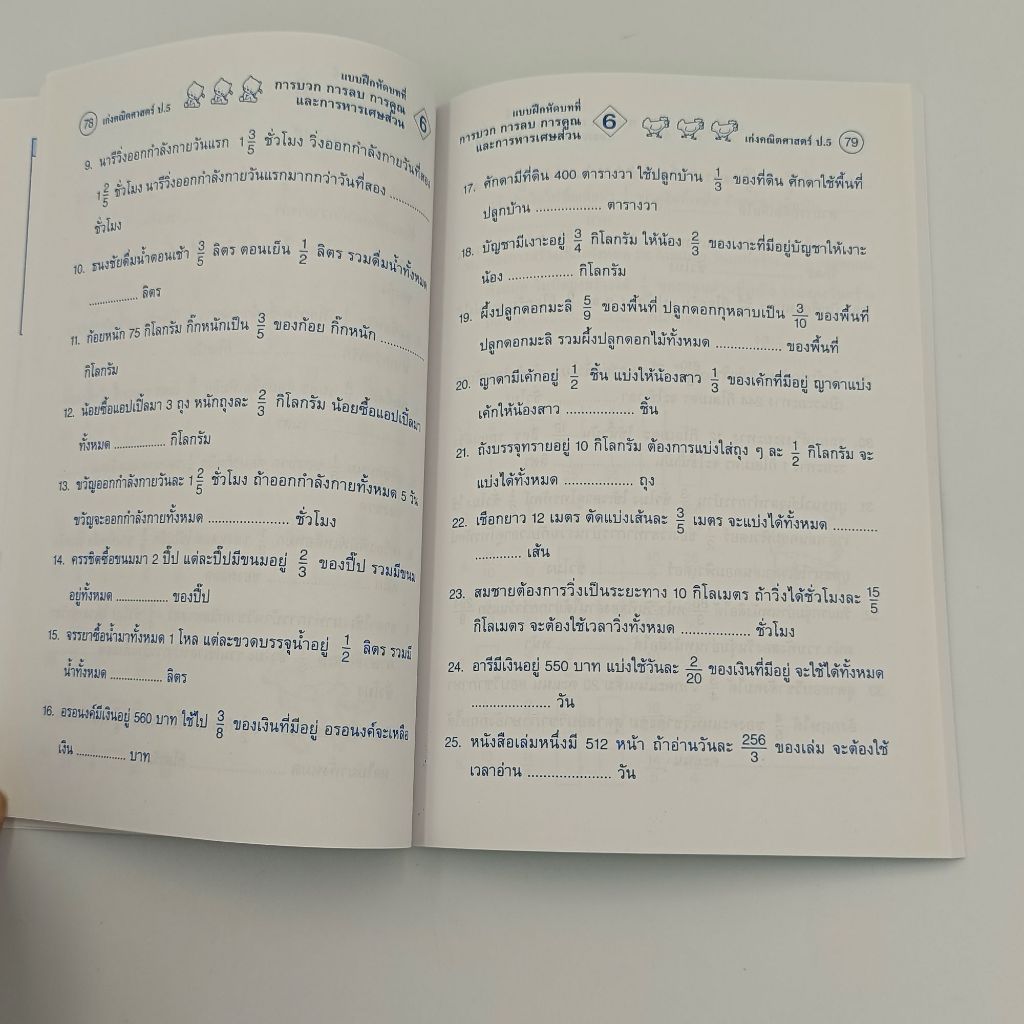 78 เก่งคณิตศาสตร์ ป.5
แบบฝึกหัดบทที่ 6
การบวก การลบ การคูณ
และการหารเศษส่วน
9. นารีวิ่งออกกำลังกายวันแรก 1 3/5 ชั่วโมง วิ่งออกกำลังกายวันที่สอง
1 2/5 ชั่วโมง นารีวิ่งออกกำลังกายวันแรกมากกว่าวันที่สอง ..............
ชั่วโมง
10. ธนงชัยดื่มน้ำตอนเช้า 3/5 ลิตร ตอนเย็น 1/2 ลิตร รวมดื่มน้ำทั้งหมด
................ ลิตร
11. ก้อยหนัก 75 กิโลกรัม กิ๊กหนักเป็น 3/5 ของก้อย กิ๊กหนัก ..............
กิโลกรัม
12. น้อยซื้อแอปเปิ้ลมา 3 ถุง หนักถุงละ 2/3 กิโลกรัม น้อยซื้อแอปเปิ้ลมา
ทั้งหมด ................ กิโลกรัม
13. ขวัญออกกำลังกายวันละ 1 2/5 ชั่วโมง ถ้าออกกำลังกายทั้งหมด 5 วัน
ขวัญจะออกกำลังกายทั้งหมด ...................... ชั่วโมง
14. ครรชิตซื้อขนมมา 2 ปี๊ป แต่ละปี๊ปมีขนมอยู่ 2/3 ของปี๊ป รวมมีขนม
อยู่ทั้งหมด ................ ของปี๊ป
15. จรรยาซื้อน้ำมาทั้งหมด 1 โหล แต่ละขวดบรรจุน้ำอยู่ 1/2 ลิตร รวมมี
น้ำทั้งหมด ................ ลิตร
16. อรอนงค์มีเงินอยู่ 560 บาท ใช้ไป 3/8 ของเงินที่มีอยู่ อรอนงค์จะเหลือ
เงิน ................ บาท
แบบฝึกหัดบทที่ 6
การบวก การลบ การคูณ
และการหารเศษส่วน
เก่งคณิตศาสตร์ ป.5 79
17. ศักดามีที่ดิน 400 ตารางวา ใช้ปลูกบ้าน 1/3 ของที่ดิน ศักดาใช้พื้นที่
ปลูกบ้าน .................. ตารางวา
18. บัญชามีเงาะอยู่ 3/4 กิโลกรัม ให้น้อง 2/3 ของเงาะที่มีอยู่บัญชาให้เงาะ
น้อง .................. กิโลกรัม
19. ผึ้งปลูกดอกมะลิ 5/9 ของพื้นที่ ปลูกดอกกุหลาบเป็น 3/10 ของพื้นที่
ปลูกดอกมะลิ รวมผึ้งปลูกดอกไม้ทั้งหมด .................. ของพื้นที่
20. ญาดามีเค้กอยู่ 1/2 ชิ้น แบ่งให้น้องสาว 1/3 ของเค้กที่มีอยู่ ญาดาแบ่ง
เค้กให้น้องสาว .................. ชิ้น
21. ถังบรรจุทรายอยู่ 10 กิโลกรัม ต้องการแบ่งใส่ถุง ๆ ละ 1/2 กิโลกรัม จะ
แบ่งได้ทั้งหมด .................. ถุง
22. เชือกยาว 12 เมตร ตัดแบ่งเส้นละ 3/5 เมตร จะแบ่งได้ทั้งหมด ............
............. เส้น
23. สมชายต้องการวิ่งเป็นระยะทาง 10 กิโลเมตร ถ้าวิ่งได้ชั่วโมงละ 15/5
กิโลเมตร จะต้องใช้เวลาวิ่งทั้งหมด .................. ชั่วโมง
24. อารีมีเงินอยู่ 550 บาท แบ่งใช้วันละ 2/20 ของเงินที่มีอยู่ จะใช้ได้ทั้งหมด
...................... วัน
25. หนังสือเล่มหนึ่งมี 512 หน้า ถ้าอ่านวันละ 256/3 ของเล่ม จะต้องใช้
เวลาอ่าน ...................... วัน